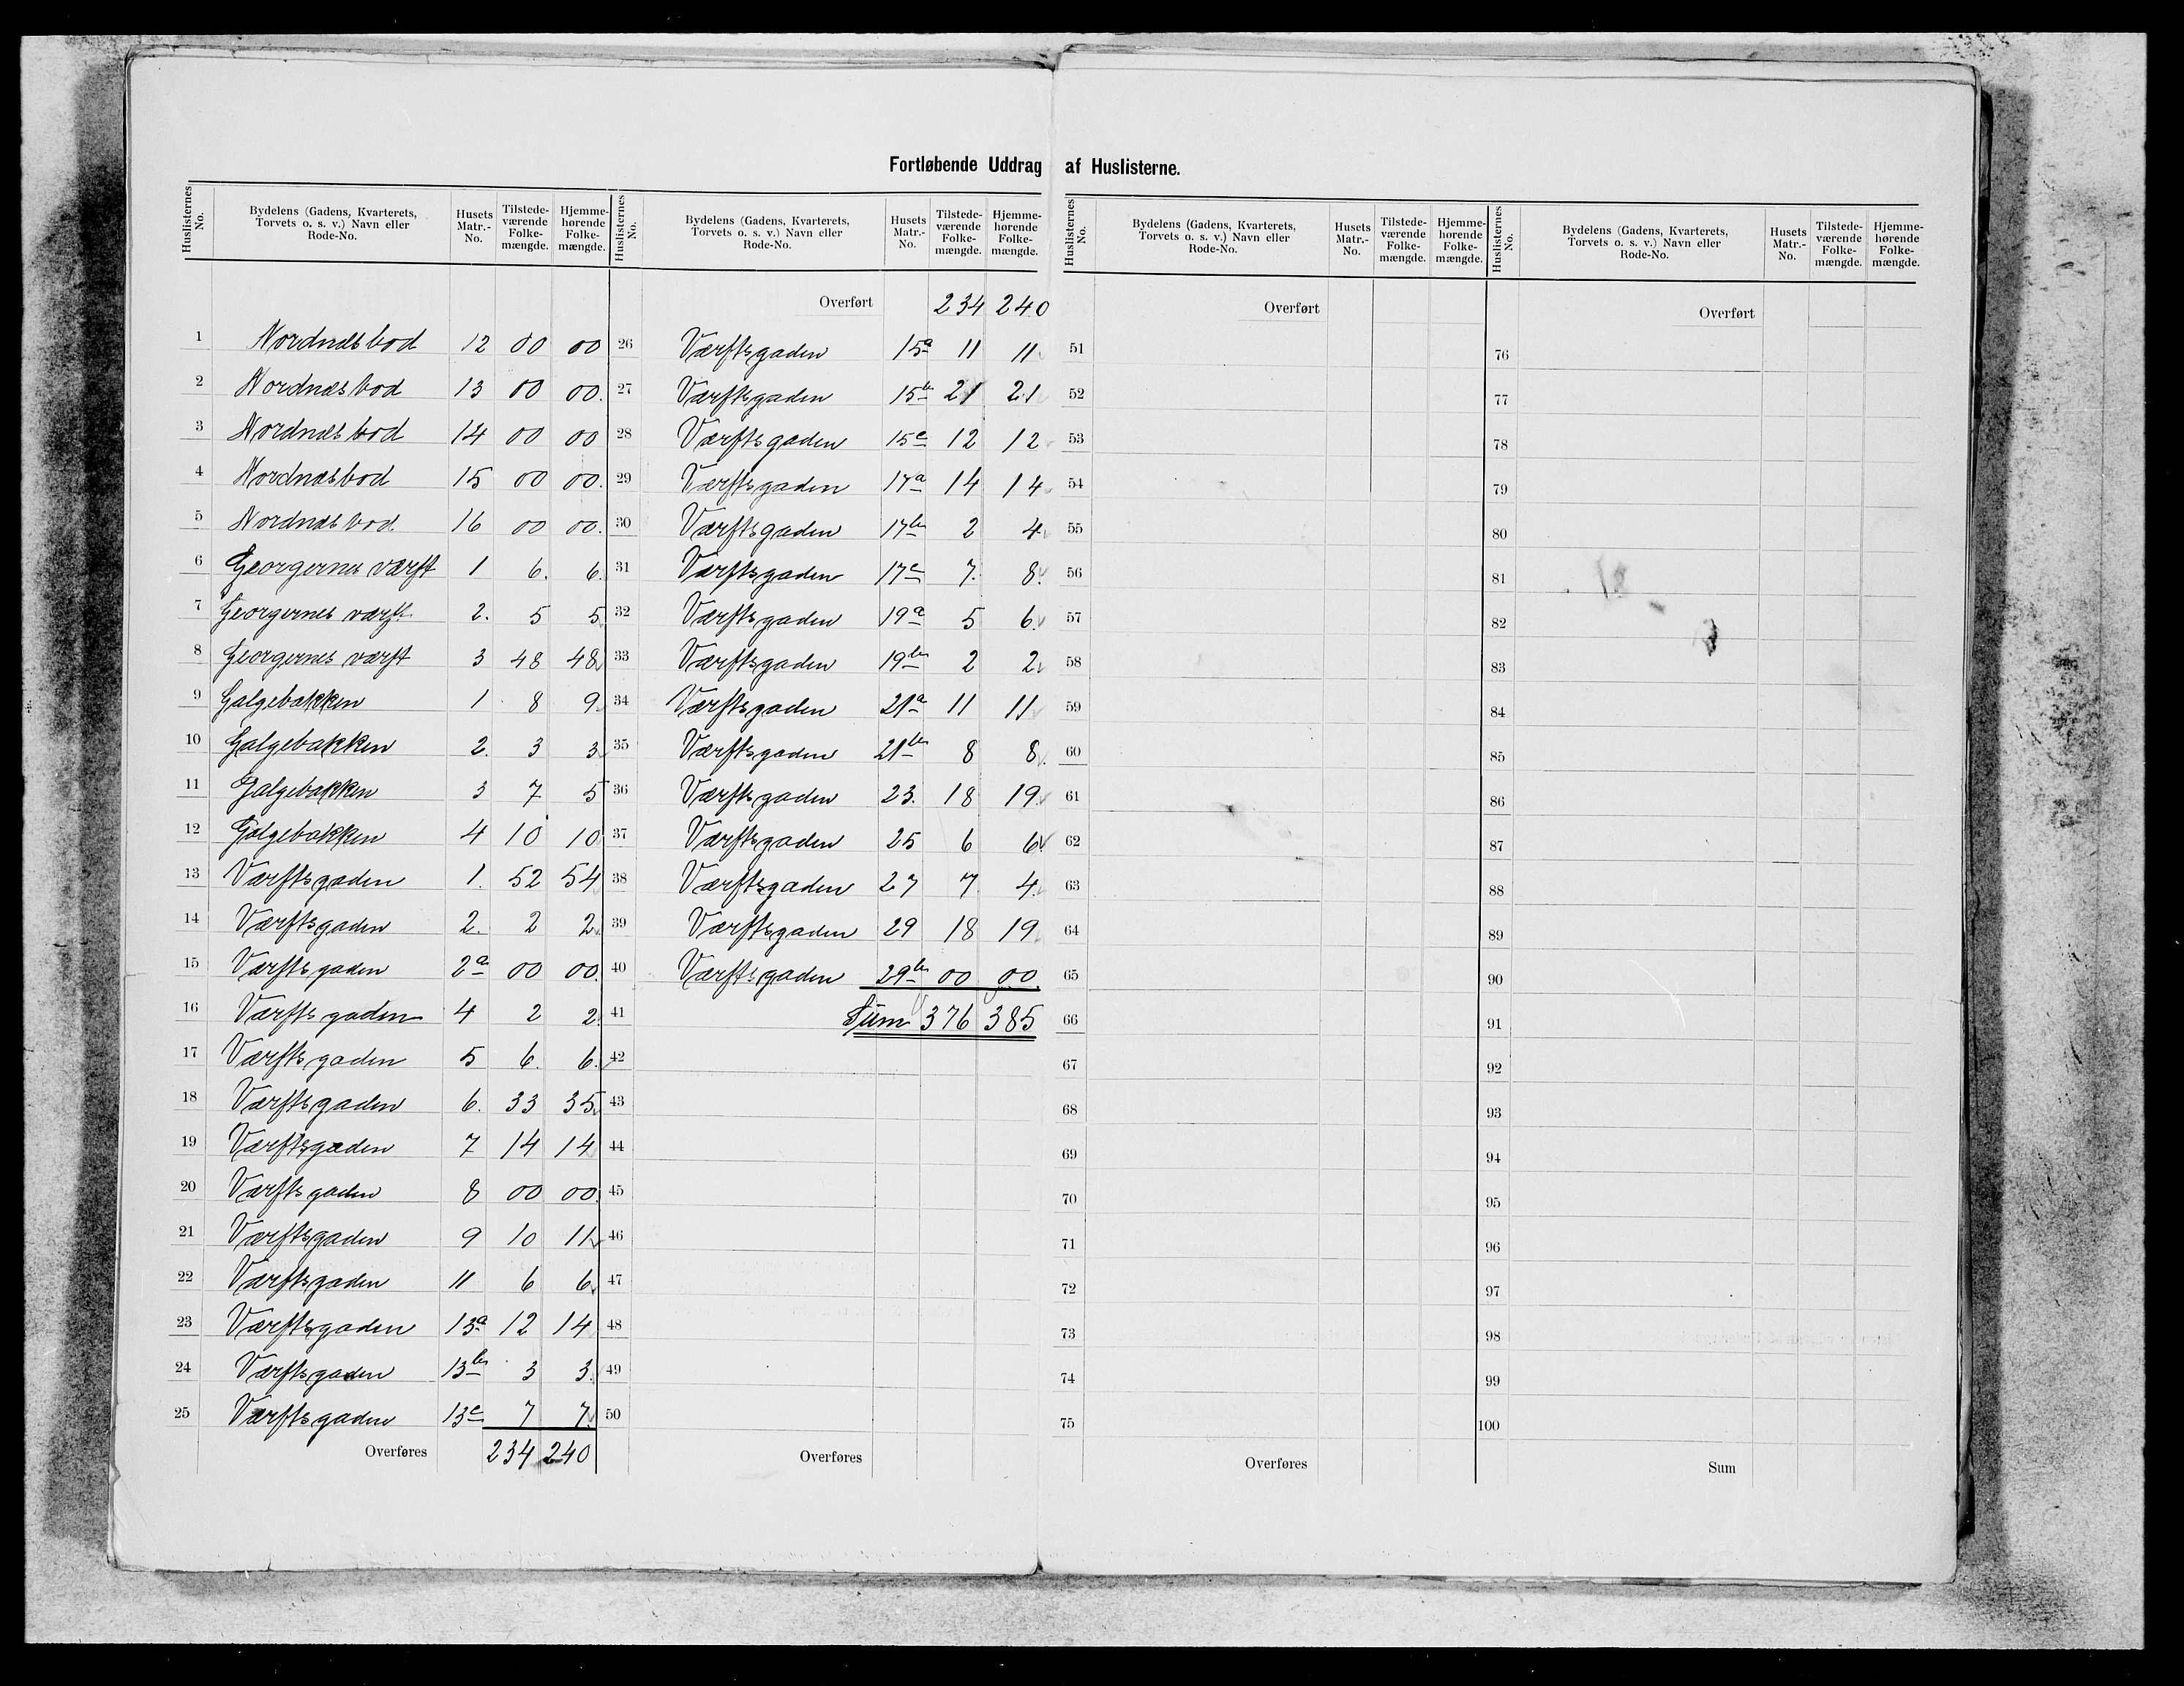 Fortløbende Uddrag af Huslisterne.
Huslisternes No. Bydelens (Gadens, Kvarterets, Torvets o. s. v.) Navn eller Rode-No. Husets Matr.-No. Tilstedeværende Folkemængde. Hjemmehørende Folkemængde.
1 Nordnæsbod 12 00 00
2 Nordnæsbod 13 00 00.
3 Nordnæsbod 14 00 00
4 Nordnæsbod 15 00 00.
5 Nordnæsbod. 16 00 00.
6 Georgernes værft 1 6. 6.
7 Georgernes værft 2. 5 5
8 Georgernes værft 3 48 48
9 Galgebakken 1 8 9
10 Galgebakken 2. 3 3
11 Galgebakken 3 7 5
12 Galgebakken 4 10 10
13 Værftsgaden 1. 52 54
14 Værftsgaden 2. 2 2
15 Værftsgaden 2a 00 00
16 Værftsgaden 4 2 2
17 Værftsgaden 5 6. 6.
18 Værftsgaden 6. 33 35
19 Værftsgaden 7 14 14
20 Værftsgaden 8 00 00
21 Værftsgaden 9 10 11
22 Værftsgaden 11 6 6
23 Værftsgaden 13a 12 14
24 Værftsgaden 13b 3 3.
25 Værftsgaden 13c 7 7
Overføres 234 240
Huslisternes No. Bydelens (Gadens, Kvarterets, Torvets o. s. v.) Navn eller Rode-No. Husets Matr.-No. Tilstedeværende Folkemængde. Hjemmehørende Folkemængde.
Overført 234 240
26 Værftsgaden 15a 11 11
27 Værftsgaden 15b 21 21
28 Værftsgaden 15c 12 12
29 Værftsgaden 17a 14 14
30 Værftsgaden 17b 2 4
31 Værftsgaden 17c 7. 8.
32 Værftsgaden 19a 5 6
33 Værftsgaden 19b 2 2
34 Værftsgaden 21a 11 11
35 Værftsgaden 21b 8 8
36 Værftsgaden 23. 18 19
37 Værftsgaden 25 6 6
38 Værftsgaden 27 7 4
39 Værftsgaden 29 18 19
40 Værftsgaden 29b 00 00.
41 Sum 376 385
42
43
44
45
46
47
48
49
50
Overføres
Huslisternes No. Bydelens (Gadens, Kvarterets, Torvets o. s. v.) Navn eller Rode-No. Husets Matr.-No. Tilstedeværende Folkemængde. Hjemmehørende Folkemængde.
Overført
51
52
53
54
55
56
57
58
59
60
61
62
63
64
65
66
67
68
69
70
71
72
73
74
75
Overføres
Huslisternes No. Bydelens (Gadens, Kvarterets, Torvets o. s. v.) Navn eller Rode-No. Husets Matr.-No. Tilstedeværende Folkemængde. Hjemmehørende Folkemængde.
Overført
76
77
78
79
80
81
82
83
84
85
86
87
88
89
90
91
92
93
94
95
96
97
98
99
100
Sum